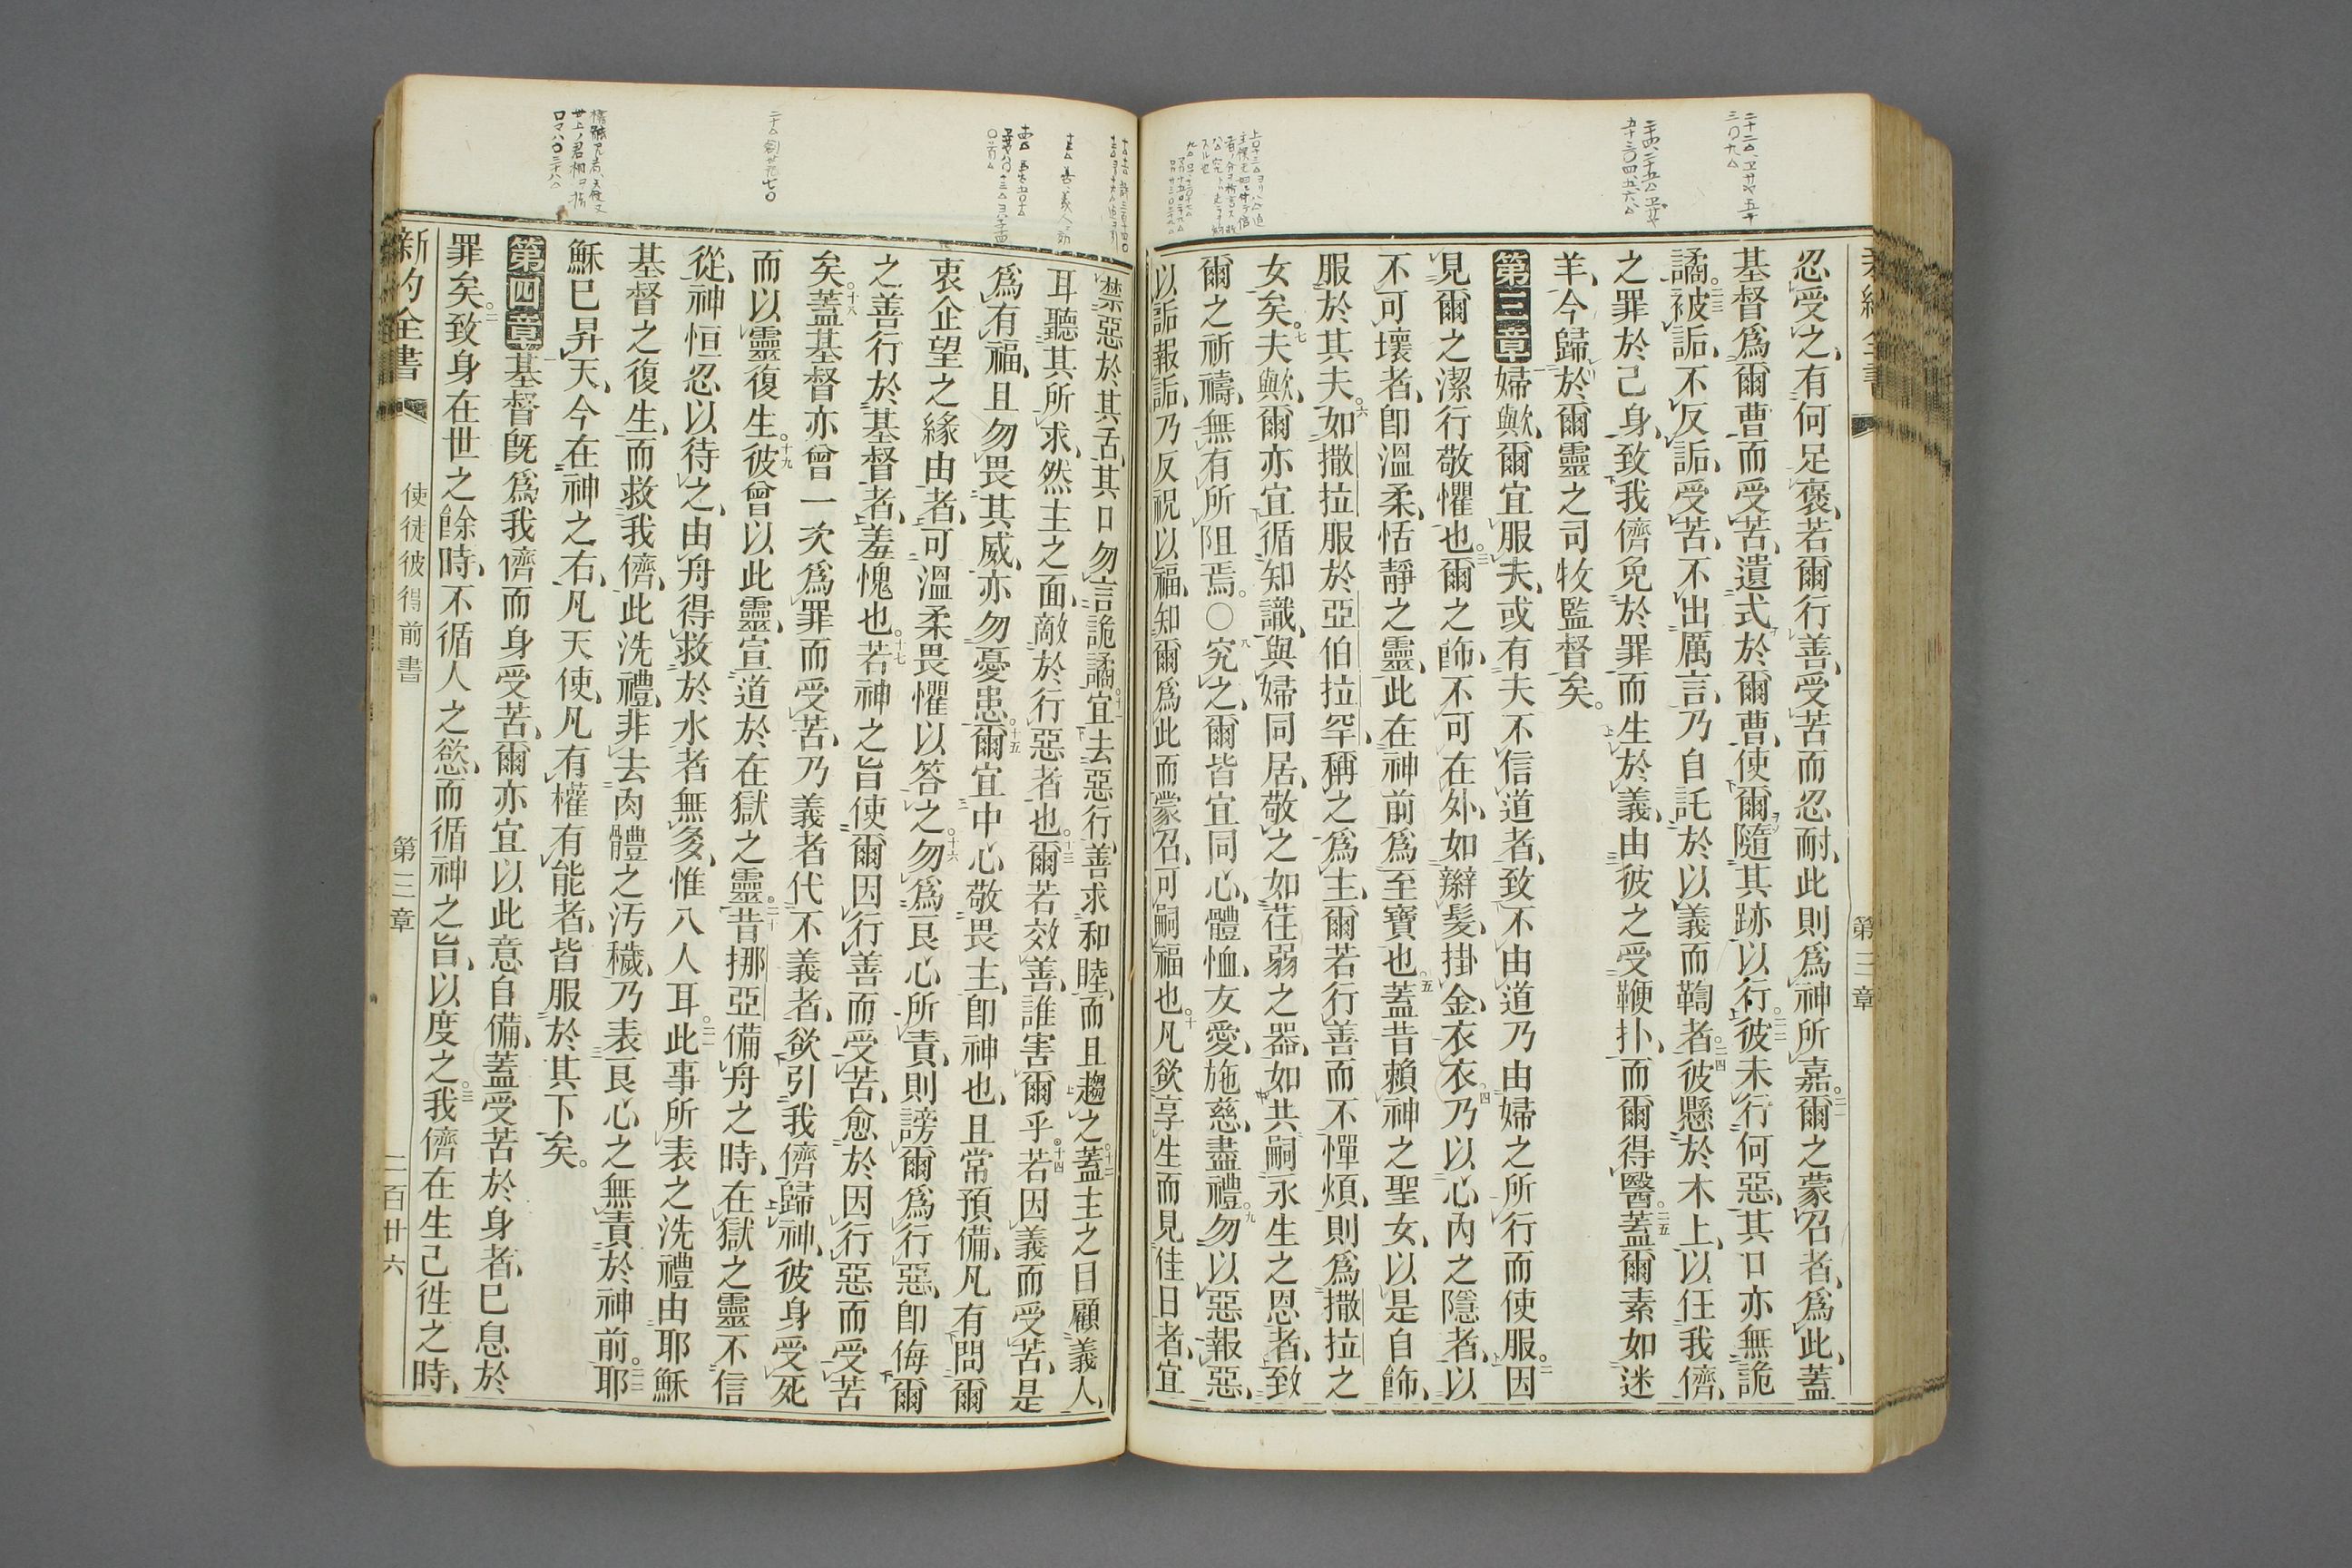 忍受之、有何足褒、若爾行善、受苦而忍耐、此則爲神所嘉。二一爾之蒙召者、爲此、蓋
基督爲爾曹而受苦、遺式於爾曹、使爾隨其跡以行。二二彼未行何惡、其口亦無詭
譎。二三被詬、不反詬、受苦、不出厲言、乃自託於以義而鞫者。二四彼懸於木上、以任我儕
之罪於己身、致我儕免於罪而生於義、由彼之受鞭扑、而爾得醫。二五蓋爾素如迷
羊、今歸於爾靈之司牧監督矣。
第三章 一婦歟、爾宜服夫、或有夫不信道者、致不由道乃由婦之所行而使服。二因
見爾之潔行敬懼也。三爾之飾、不可在外、如辮髮、掛金、衣衣。四乃以心內之隱者、以
不可壞者、卽溫柔、恬靜之靈、此在神前爲至寶也。五蓋昔賴神之聖女、以是自飾、
服於其夫。六如撒拉服於亞伯拉罕、稱之爲主、爾若行善而不憚煩、則爲撒拉之
女矣。七夫歟、爾亦宜循知識、與婦同居、敬之如荏弱之器、如共嗣永生之恩者、致
爾之祈禱、無有所阻焉。〇八究之、爾皆宜同心、體恤、友愛、施慈、盡禮。九勿以惡報惡、
以詬報詬、乃反祝以福、知爾爲此而蒙召、可嗣福也。十凡欲享生而見佳日者、宜
禁惡於其舌、其口勿言詭譎。十一宜去惡行善、求和睦、而且趨之。十二蓋主之目顧義人、
耳聽其所求、然主之面、敵於行惡者也。十三爾若效善、誰害爾乎。十四若因義而受苦、是
爲有福、且勿畏其威、亦勿憂患。十五爾宜中心敬畏主、卽神也、且常預備、凡有問爾
衷企望之緣由者、可溫柔畏懼以答之。十六勿爲良心所責、則謗爾爲行惡、卽侮爾
之善行於基督者、羞愧也。十七若神之旨使爾因行善而受苦、愈於因行惡而受苦
矣。十八蓋基督亦曾一次爲罪而受苦、乃義者代不義者、欲引我儕歸神、彼身受死
而以靈復生。十九彼曾以此靈、宣道於在獄之靈。二十昔挪亞備舟之時、在獄之靈不信
從、神恒忍以待之、由舟得救於水者無多、惟八人耳。二一此事所表之洗禮、由耶穌
基督之復生、而救我儕、此洗禮、非去肉體之汚穢、乃表良心之無責於神前。二二耶
穌已昇天、今在神之右、凡天使、凡有權有能者、皆服於其下矣。
第四章 一基督旣爲我儕而身受苦、爾亦宜以此意自備、蓋受苦於身者、已息於
罪矣。二致身在世之餘時、不循人之慾、而循神之旨、以度之。三我儕在生已往之時、
新約全書
使徒彼得前書
第三章
二百廿六
第三章